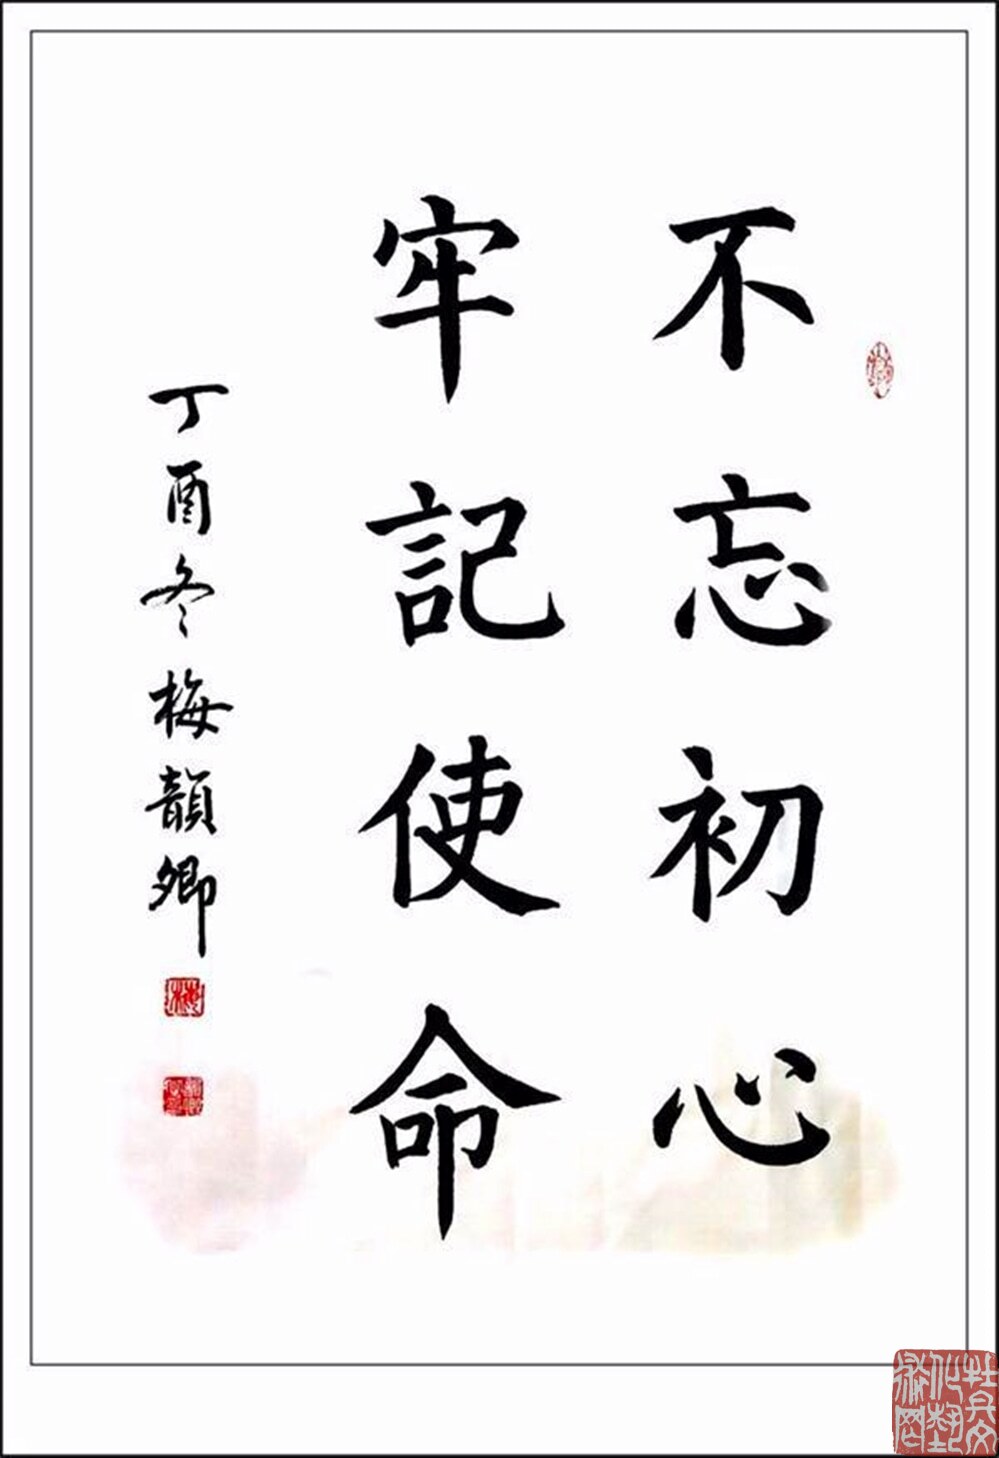 不忘初心
牢記使命
丁酉冬梅韻卿